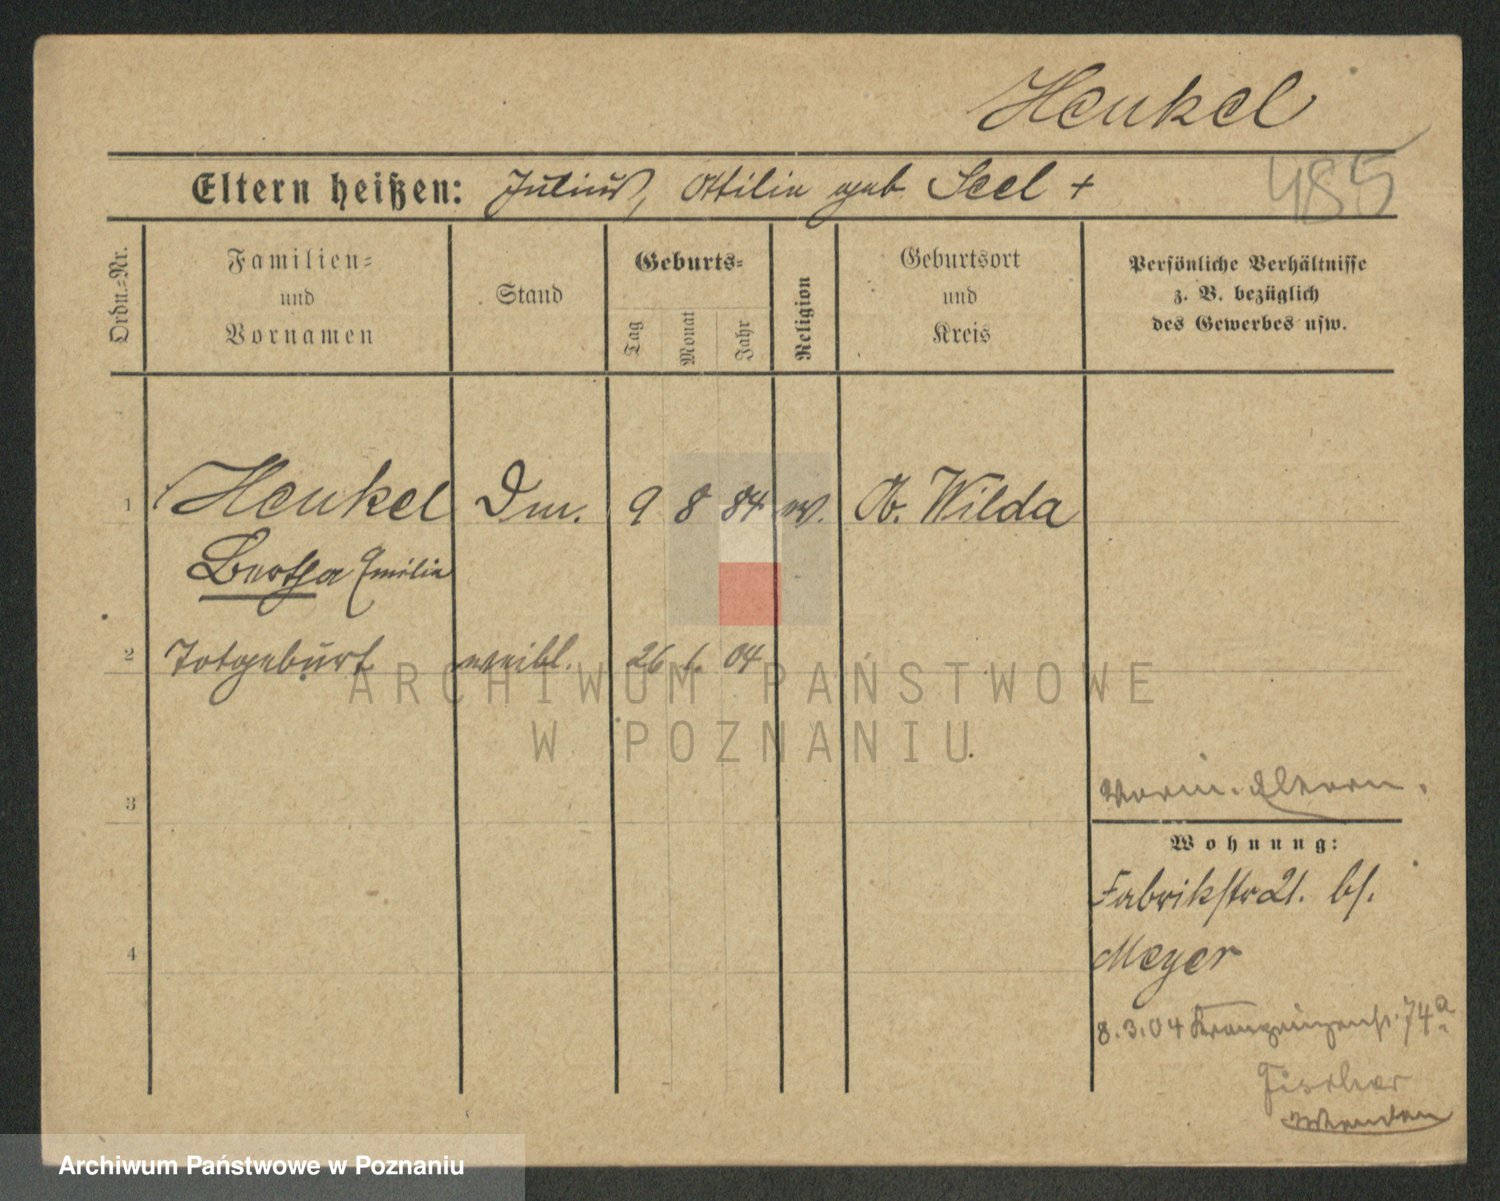 Henkel
485
Eltern heißen: Julius, Ottilie geb Seel +
Ordn.=Nr.
Familien=
und
Vornamen
Stand
Geburts=
Tag
Monat
Jahr
Religion
Geburtsort
und
Kreis
Persönliche Verhältnisse
z. B. bezüglich
des Gewerbes usw.
1 Henkel Dm. 9 8 84 ev. Ob. Wilda
Bertha Emilie
2 Totgeburt weibl. 26 1. 04
ARCHIWUM PAŃSTWOWE
W POZNANIU
3
Wohnung:
Fabrikstr 21. bs.
4
Meyer
8.3.04 Kronprinzenstr. 74a
Fischer
Wenden
Archiwum Państwowe w Poznaniu